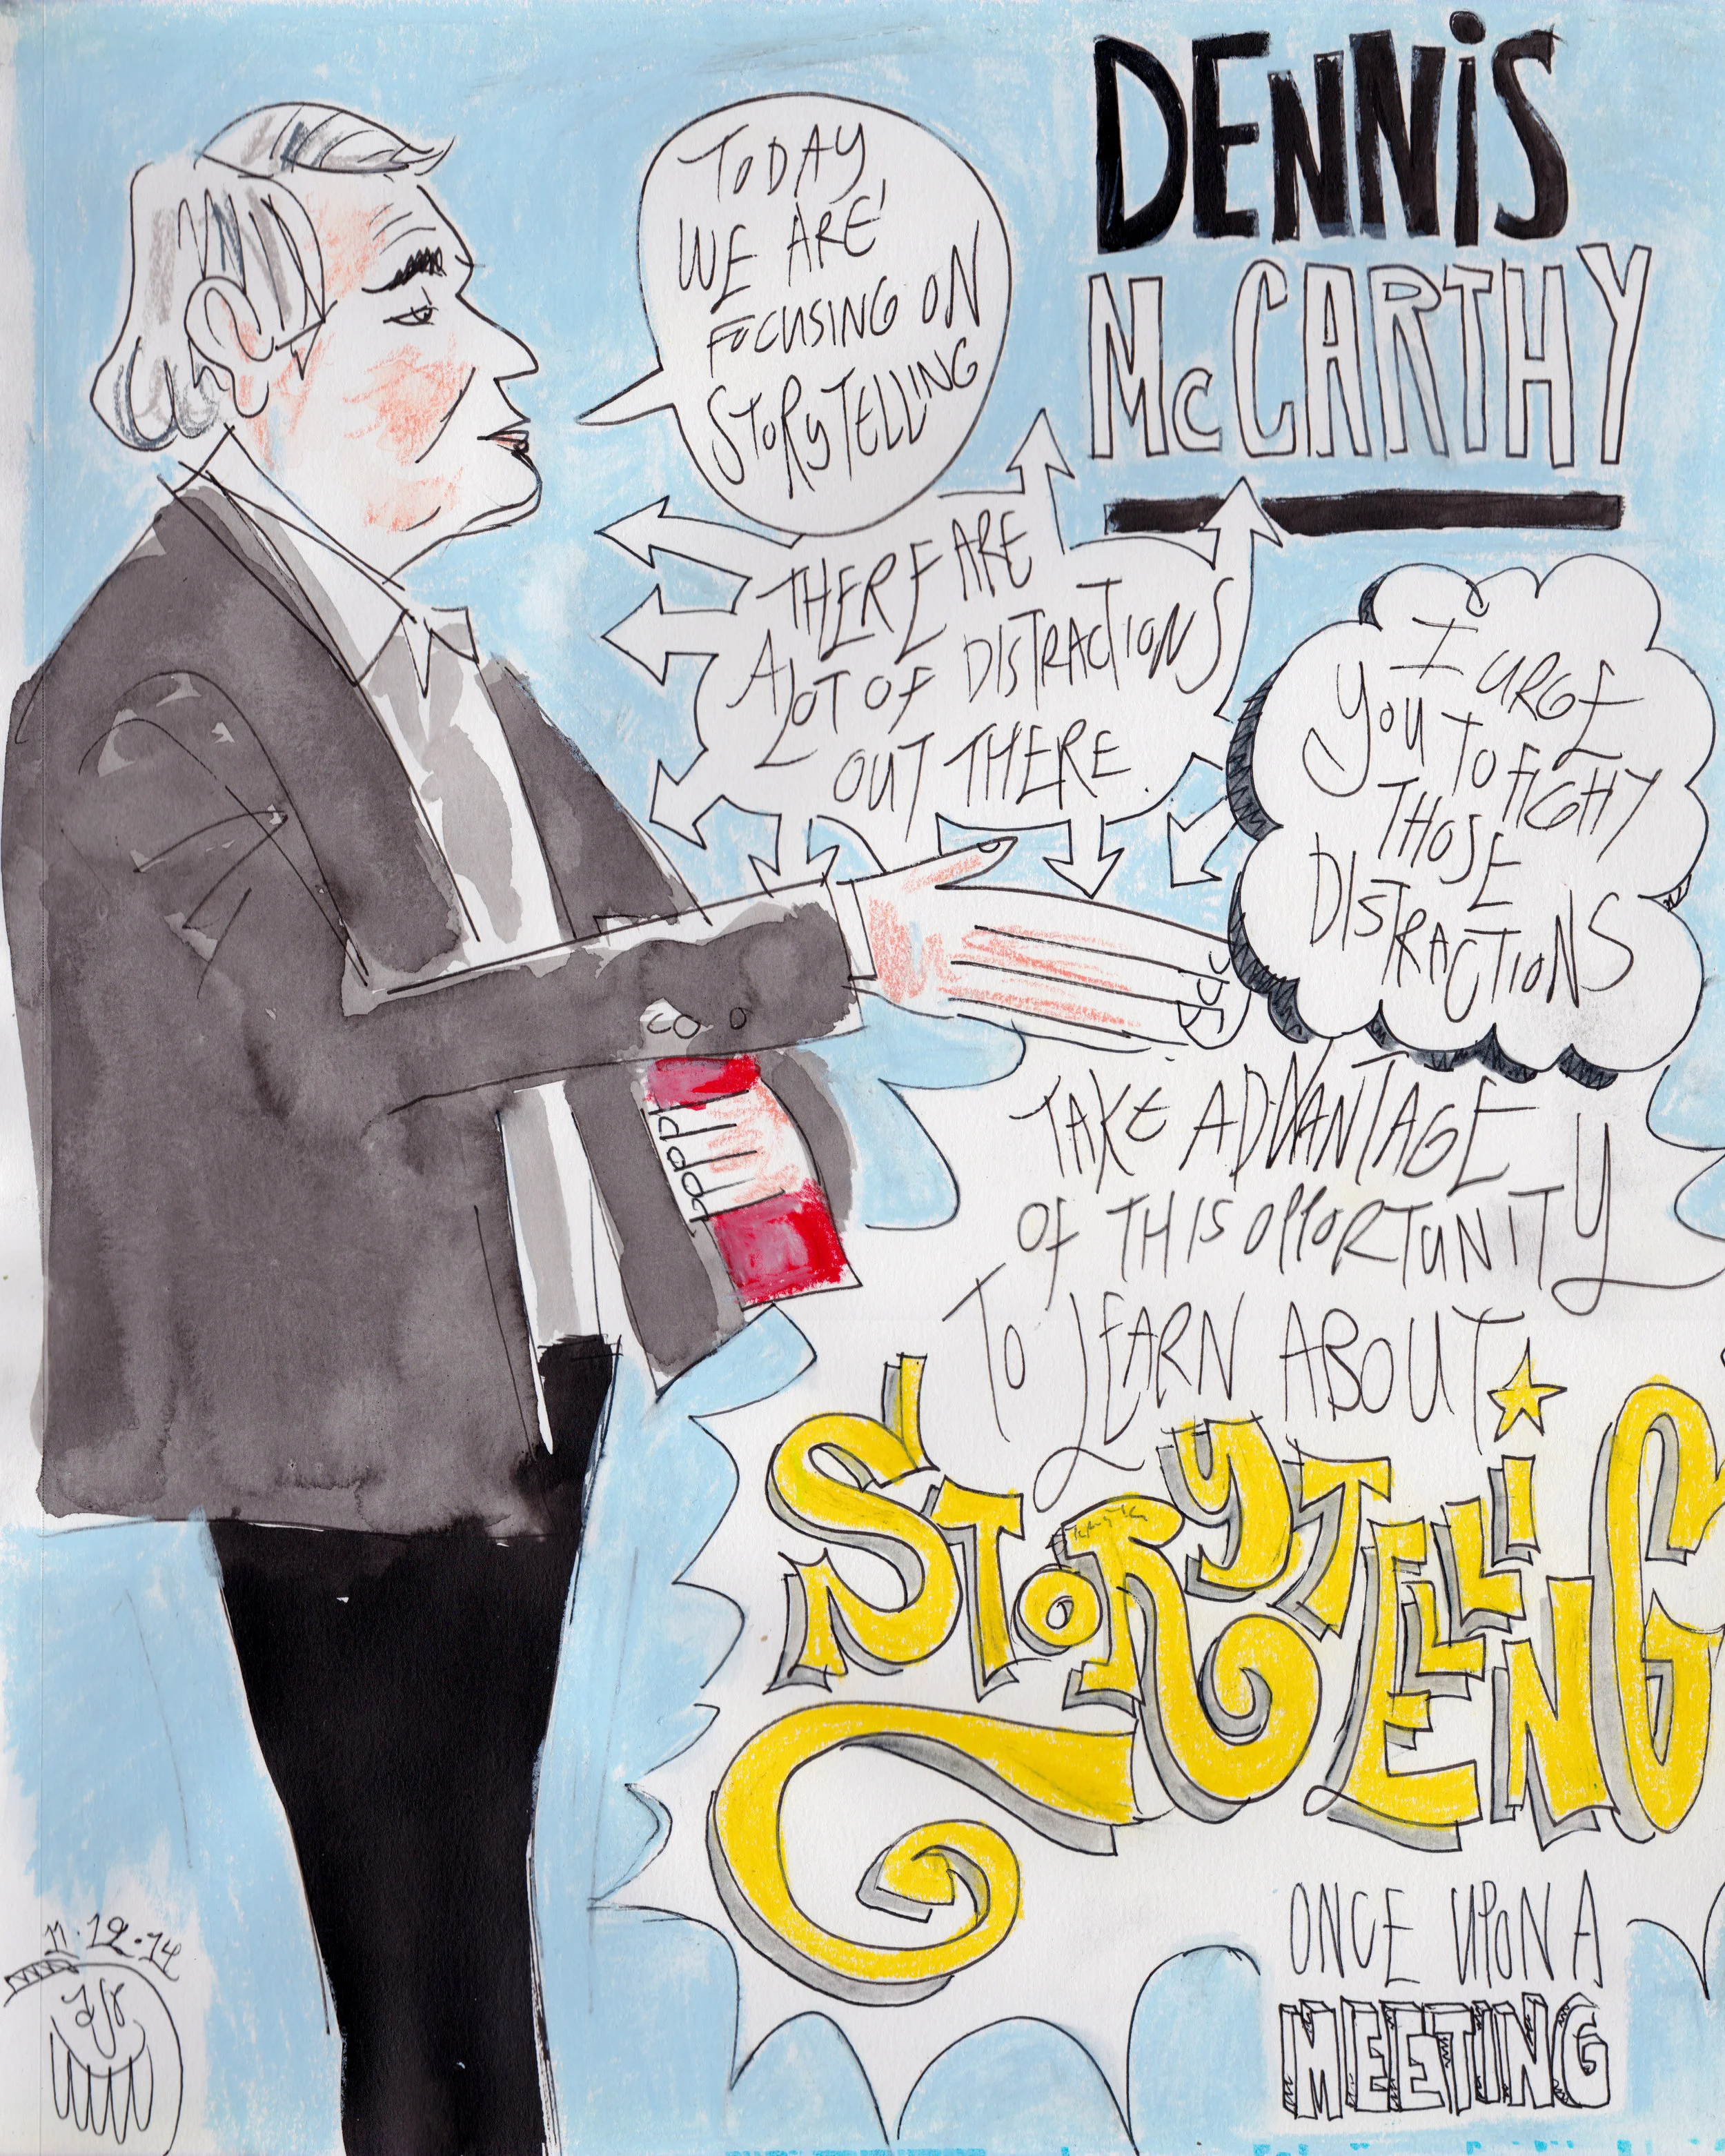 DENNIS
McCARTHY
TODAY
WE ARE
FOCUSING ON
STORYTELLING
THERE ARE
A LOT OF DISTRACTIONS
OUT THERE.
I URGE
YOU TO FIGHT
THOSE
DISTRACTIONS
TAKE ADVANTAGE
OF THIS OPPORTUNITY
TO LEARN ABOUT
STORYTELLING
ONCE UPON A
MEETING
11.12.14